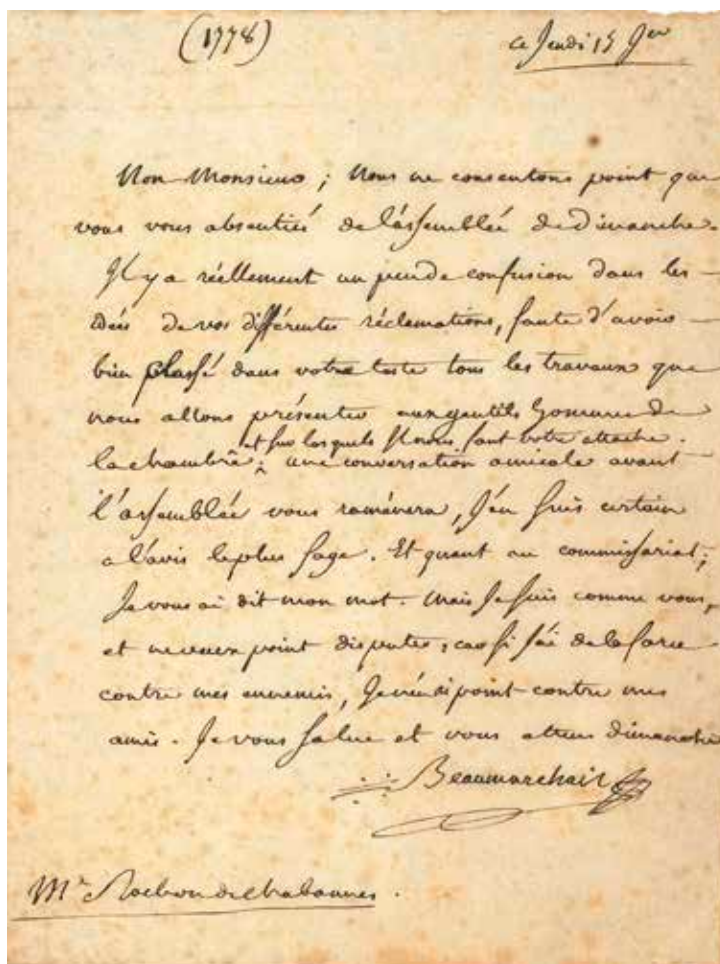 (1778)
ce Jeudi 15 Jer
Non Monsieur ; Nous ne consentons point que
vous vous absentiés de l'assemblée de Dimanche.
Il y a réellement un peu de confusion dans les
idées de vos différentes réclamations, faute d'avoir
bien classé dans votre teste tous les travaux que
nous allons présenter aux gentils hommes de
et sur lesquels il nous faut votre attache.
la chambre ; une conversation amicale avant
l'assemblée vous ramènera, J'en suis certain
a l'avis le plus sage. Et quant au commissariat ;
Je vous ai dit mon mot. Mais Je suis comme vous,
et ne veux point disputer ; car si J'ai de la force
contre mes ennemis, Je n'en ai point contre mes
amis. Je vous salue et vous attens dimanche
Beaumarchais
Mr Rochon de chabannes.